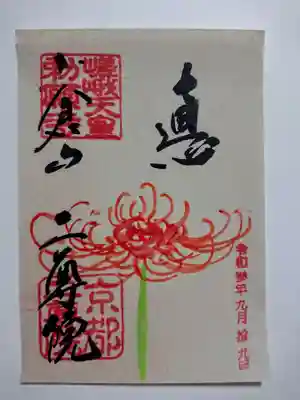 令和参年九月拾九日
嵯峨天皇
勅願寺
小倉山 二尊院
京都